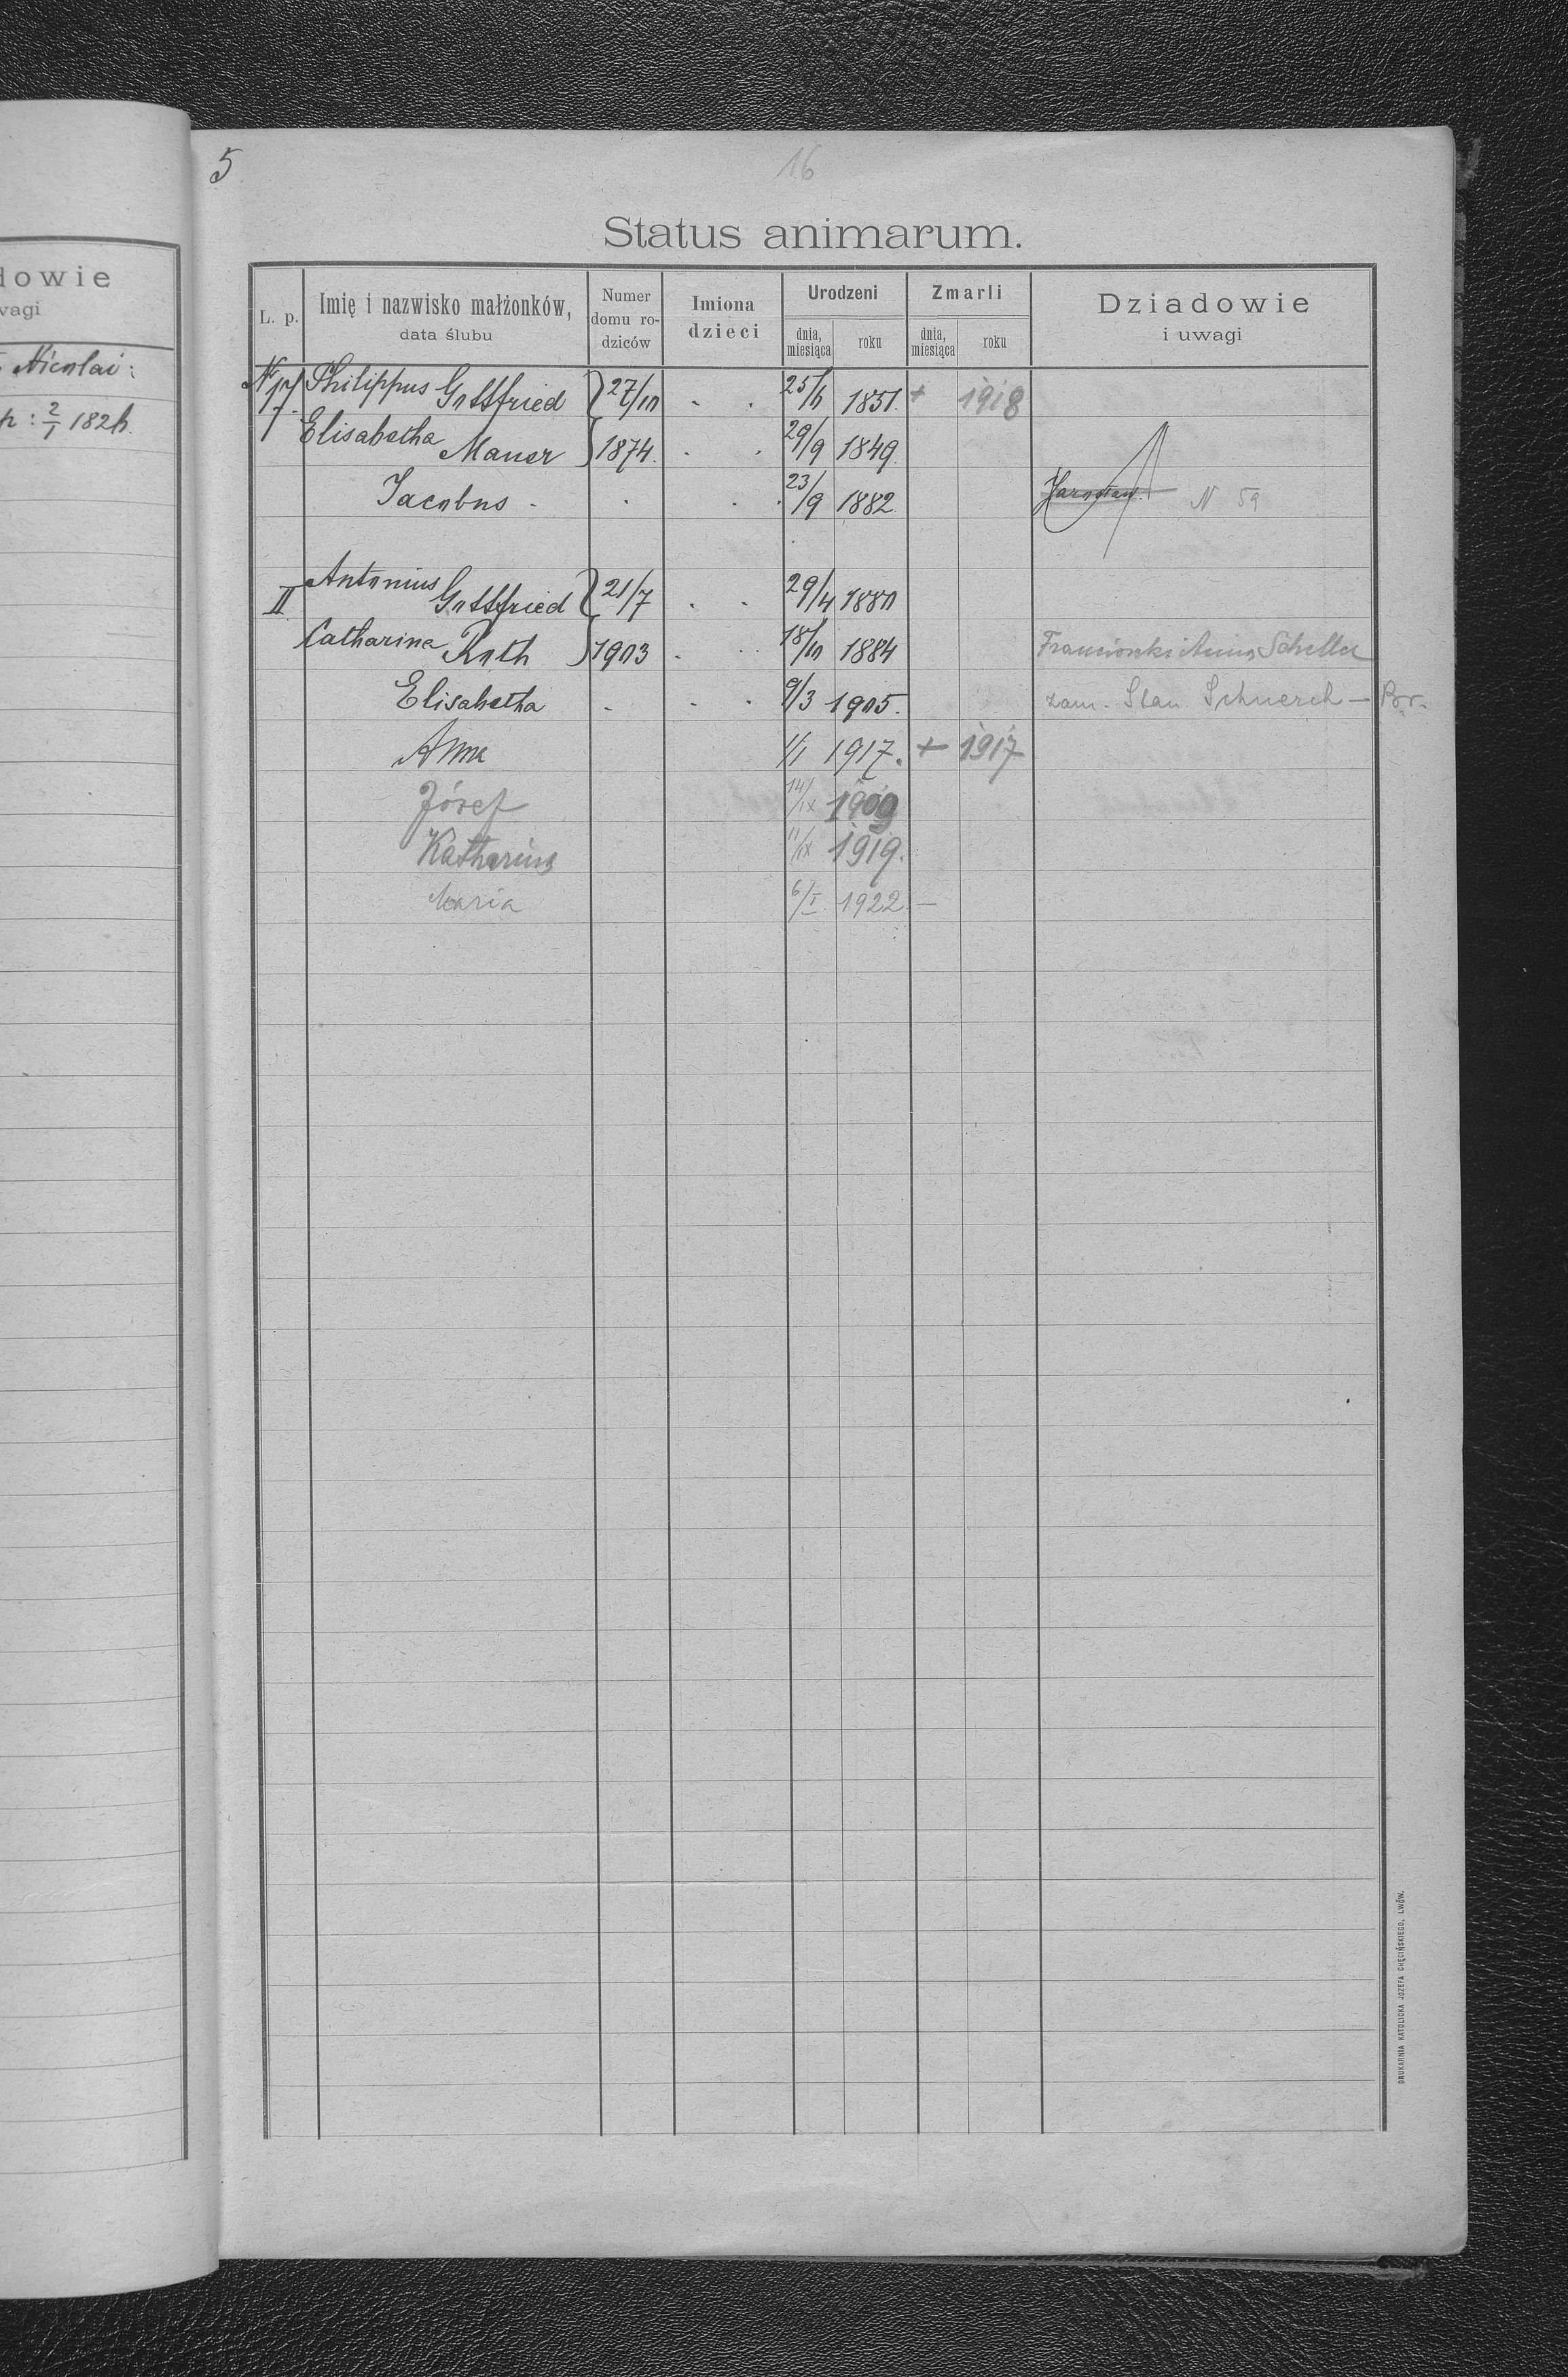 dowie
wagi
Nicolai:
p: 2/1 1826.
5
16
Status animarum.
L. p.
Imię i nazwisko małżonków,
data ślubu
Numer
domu ro-
dziców
Imiona
dzieci
Urodzeni
dnia,
miesiąca
roku
Zmarli
dnia,
miesiąca
roku
Dziadowie
i uwagi
N 17. Philippus Gottfried } 27/10 25/6 1851. + 1918
Elisabetha Mauer } 1874. 29/9 1849.
Jacobus 23/9 1882. Jarosław. N 59
II Antonius Gottfried } 21/7 29/4 1880
Catharina Roth } 1903 18/10 1884 Anna Scheller
Elisabetha 9/3 1905. zam. Stan Schuerch — Por.
Anna 1/1 1917. + 1917
Józef 14/IX 1909
Katharina 11/IX 1919.
Maria 6/I 1922. —
DRUKARNIA KATOLICKA JÓZEFA CHĘCIŃSKIEGO, LWÓW.